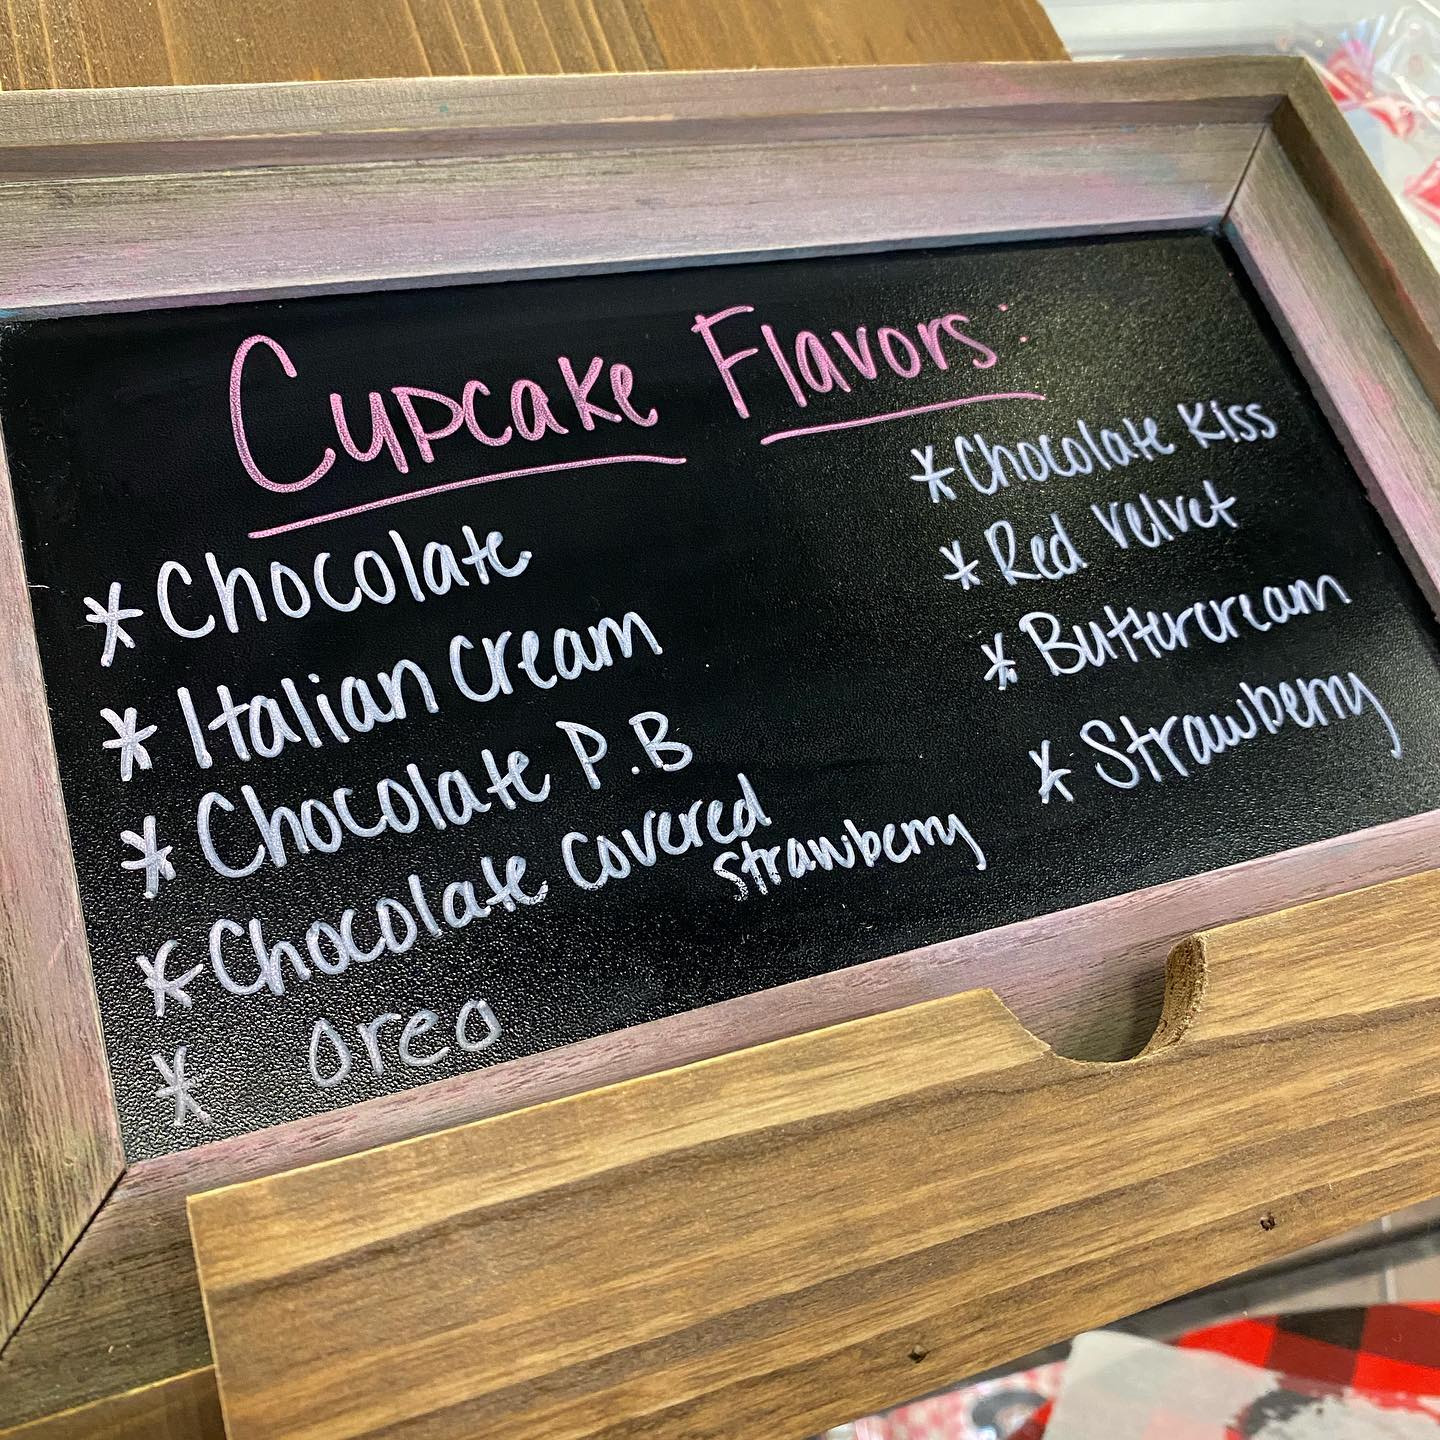 Cupcake Flavors:
* Chocolate
* Italian Cream
* Chocolate P.B
* Chocolate Covered
Strawberry
* Oreo
* Chocolate Kiss
* Red Velvet
* Buttercream
* Strawberry